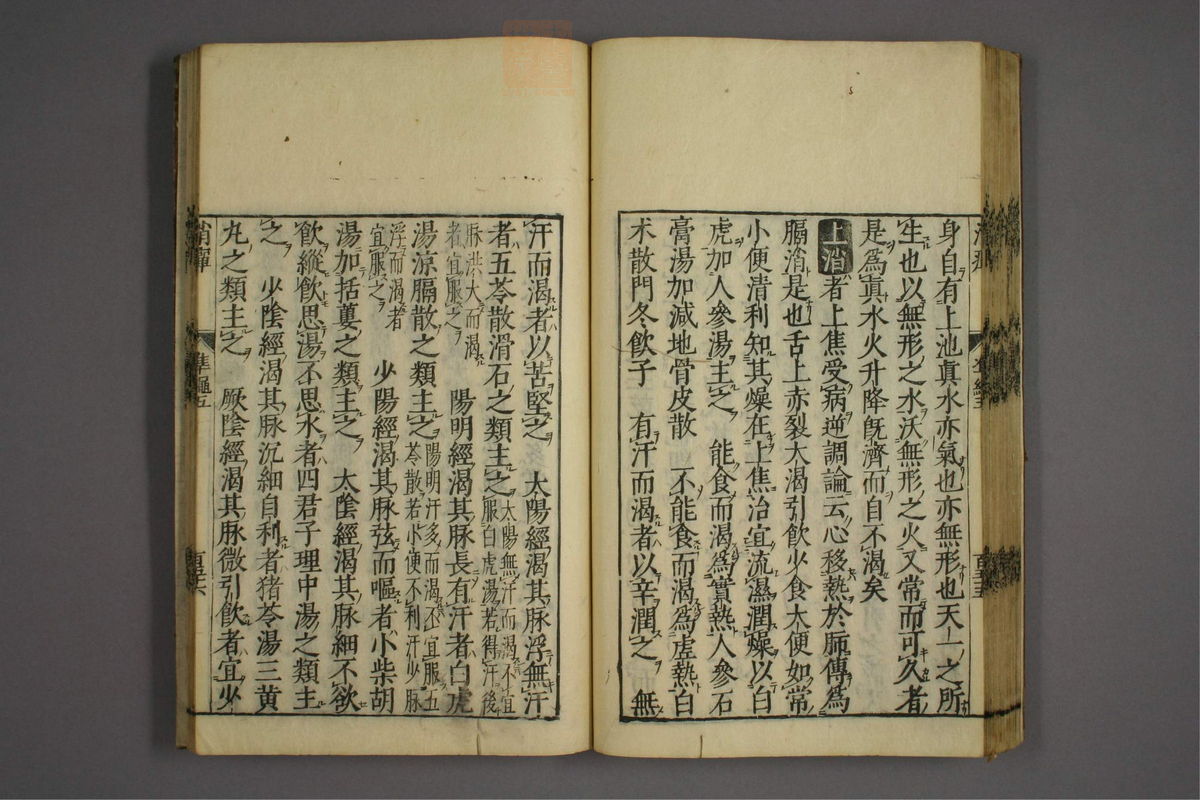 身自有上池眞水亦氣也亦無形也天一之所
生也以無形之水沃無形之火又常而可久者
是爲眞水火升降旣濟而自不渴矣
上消者上焦受病逆調論云心移熱於肺傳爲
膈消是也舌上赤裂大渴引飲少食大便如常
小便清利知其燥在上焦治宜流濕潤燥以白
虎加人參湯主之　能食而渴爲實熱人參石
膏湯加減地骨皮散　不能食而渴爲虛熱白
朮散門冬飲子　有汗而渴者以辛潤之　無
汗而渴者以苦堅之　太陽經渴其脉浮無汗
者五苓散滑石之類主之太陽無汗而渴不宜
服白虎湯若得汗後
脉洪大而渴
者宜服之　陽明經渴其脉長有汗者白虎
湯涼膈散之類主之陽明汗多而渴不宜服五
苓散若小便不利汗少脉
浮而渴者
宜服之　少陽經渴其脉弦而嘔者小柴胡
湯加括蔞之類主之　太陰經渴其脉細不欲
飲縱飲思湯不思水者四君子理中湯之類主
之　少陰經渴其脉沉細自利者猪苓湯三黄
丸之類主之　厥陰經渴其脉微引飲者宜少
消癉　準繩五　百五六